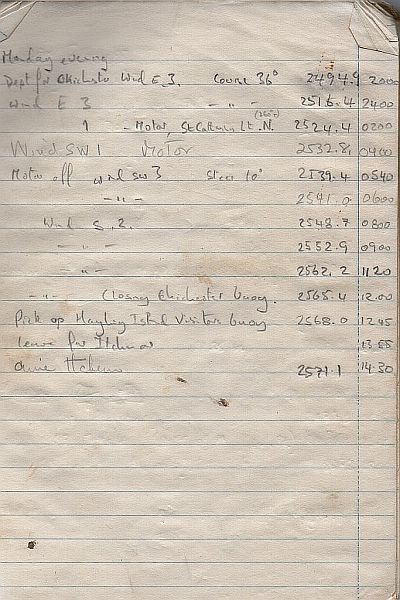 Monday evening
Dept for Chichester Wind E.3. Course 36° 2494.9 2000
Wind E 3 - " - 2516.4 2400
1 - Motor, St Catherines Lt. N. 2524.4 0200
Wind SW 1 Motor 2532.8 0400
Motor off wind SW 3 Steer 10° 2539.4 0540
- " - 2541.0 0600
Wind S. 2. 2548.7 0800
- " - 2552.9 0900
- " - 2562.2 1120
- " - Closing Chichester buoy. 2565.4 12.00
Pick up Hayling Island Visitors buoy 2568.0 1245
Leave for Itchenor
Arrive Itchenor 2571.1 14.30